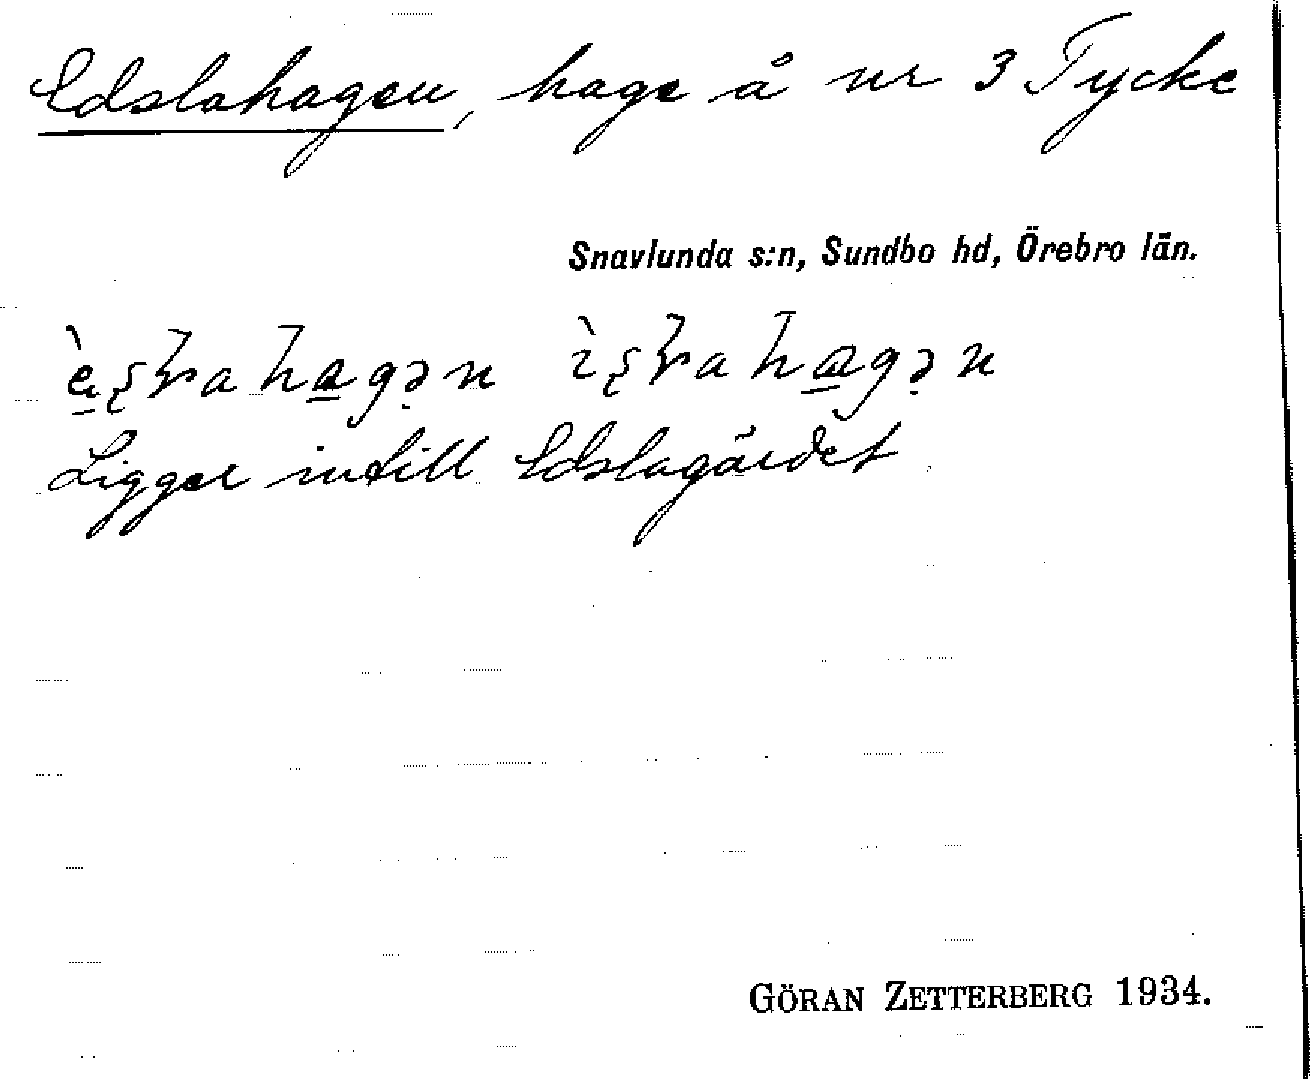 Edslahagen, hage å nr 3 Tycke
Snavlunda s:n, Sundbo hd, Örebro län.
Ligger intill Edslagärdet
GÖRAN ZETTERBERG 1934.